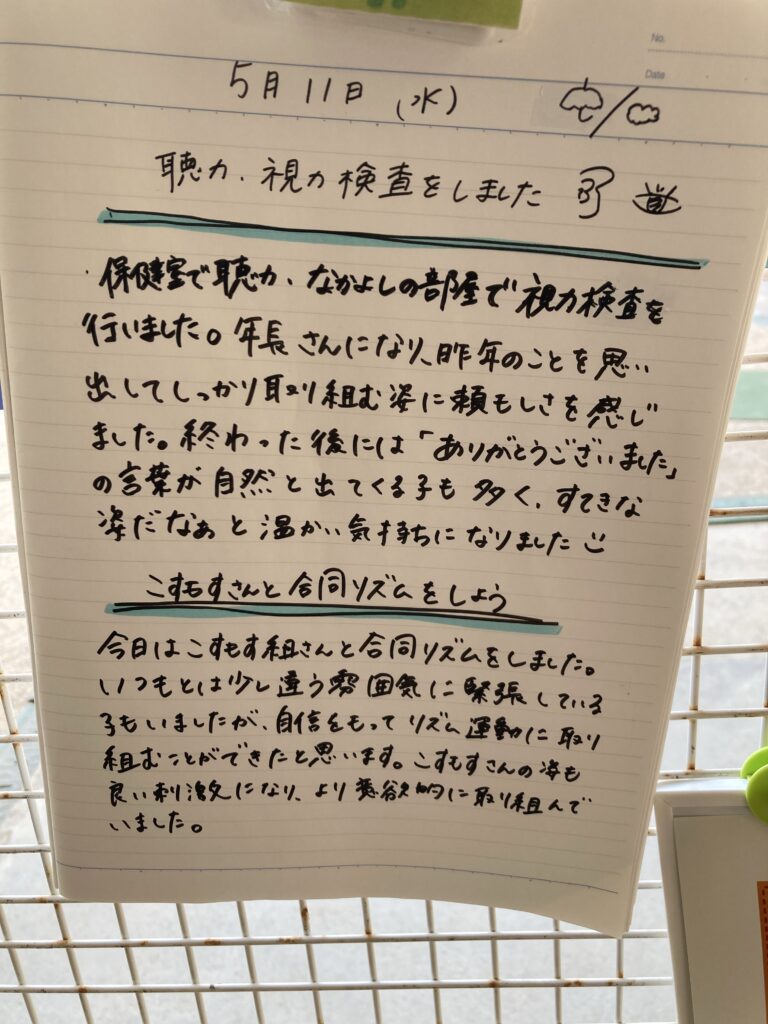 No.
Date
5月11日 (水)
聴力、視力検査をしました
・保健室で聴力、なかよしの部屋で視力検査を
行いました。年長さんになり、昨年のことを思い
出してしっかり取り組む姿に頼もしさを感じ
ました。終わった後には「ありがとうございました」
の言葉が自然と出てくる子も多く、すてきな
姿だなぁと温かい気持ちになりました
こすもすさんと合同リズムをしよう
今日はこすもす組さんと合同リズムをしました。
いつもとは少し違う雰囲気に緊張している
子もいましたが、自信をもってリズム運動に取り
組むことができたと思います。こすもすさんの姿も
良い刺激になり、より意欲的に取り組んで
いました。